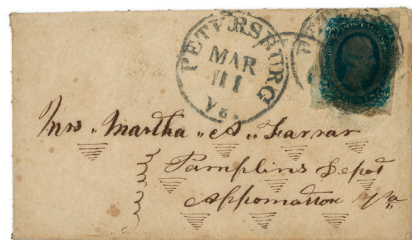 PETERSBURG
MAR
11
Va.
Mrs. Martha A. Farrar
Pamplins Depot
Appomattox Va